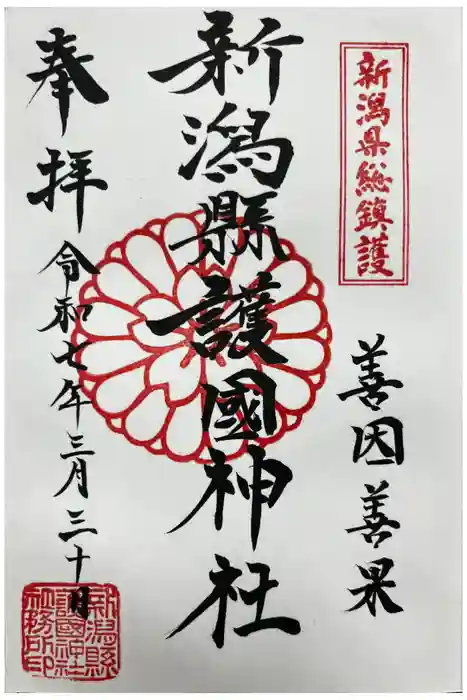 新潟県総鎮護
善因善果
新潟縣護國神社
奉拝
令和七年三月三十日
新潟縣
護國神社
社務所印